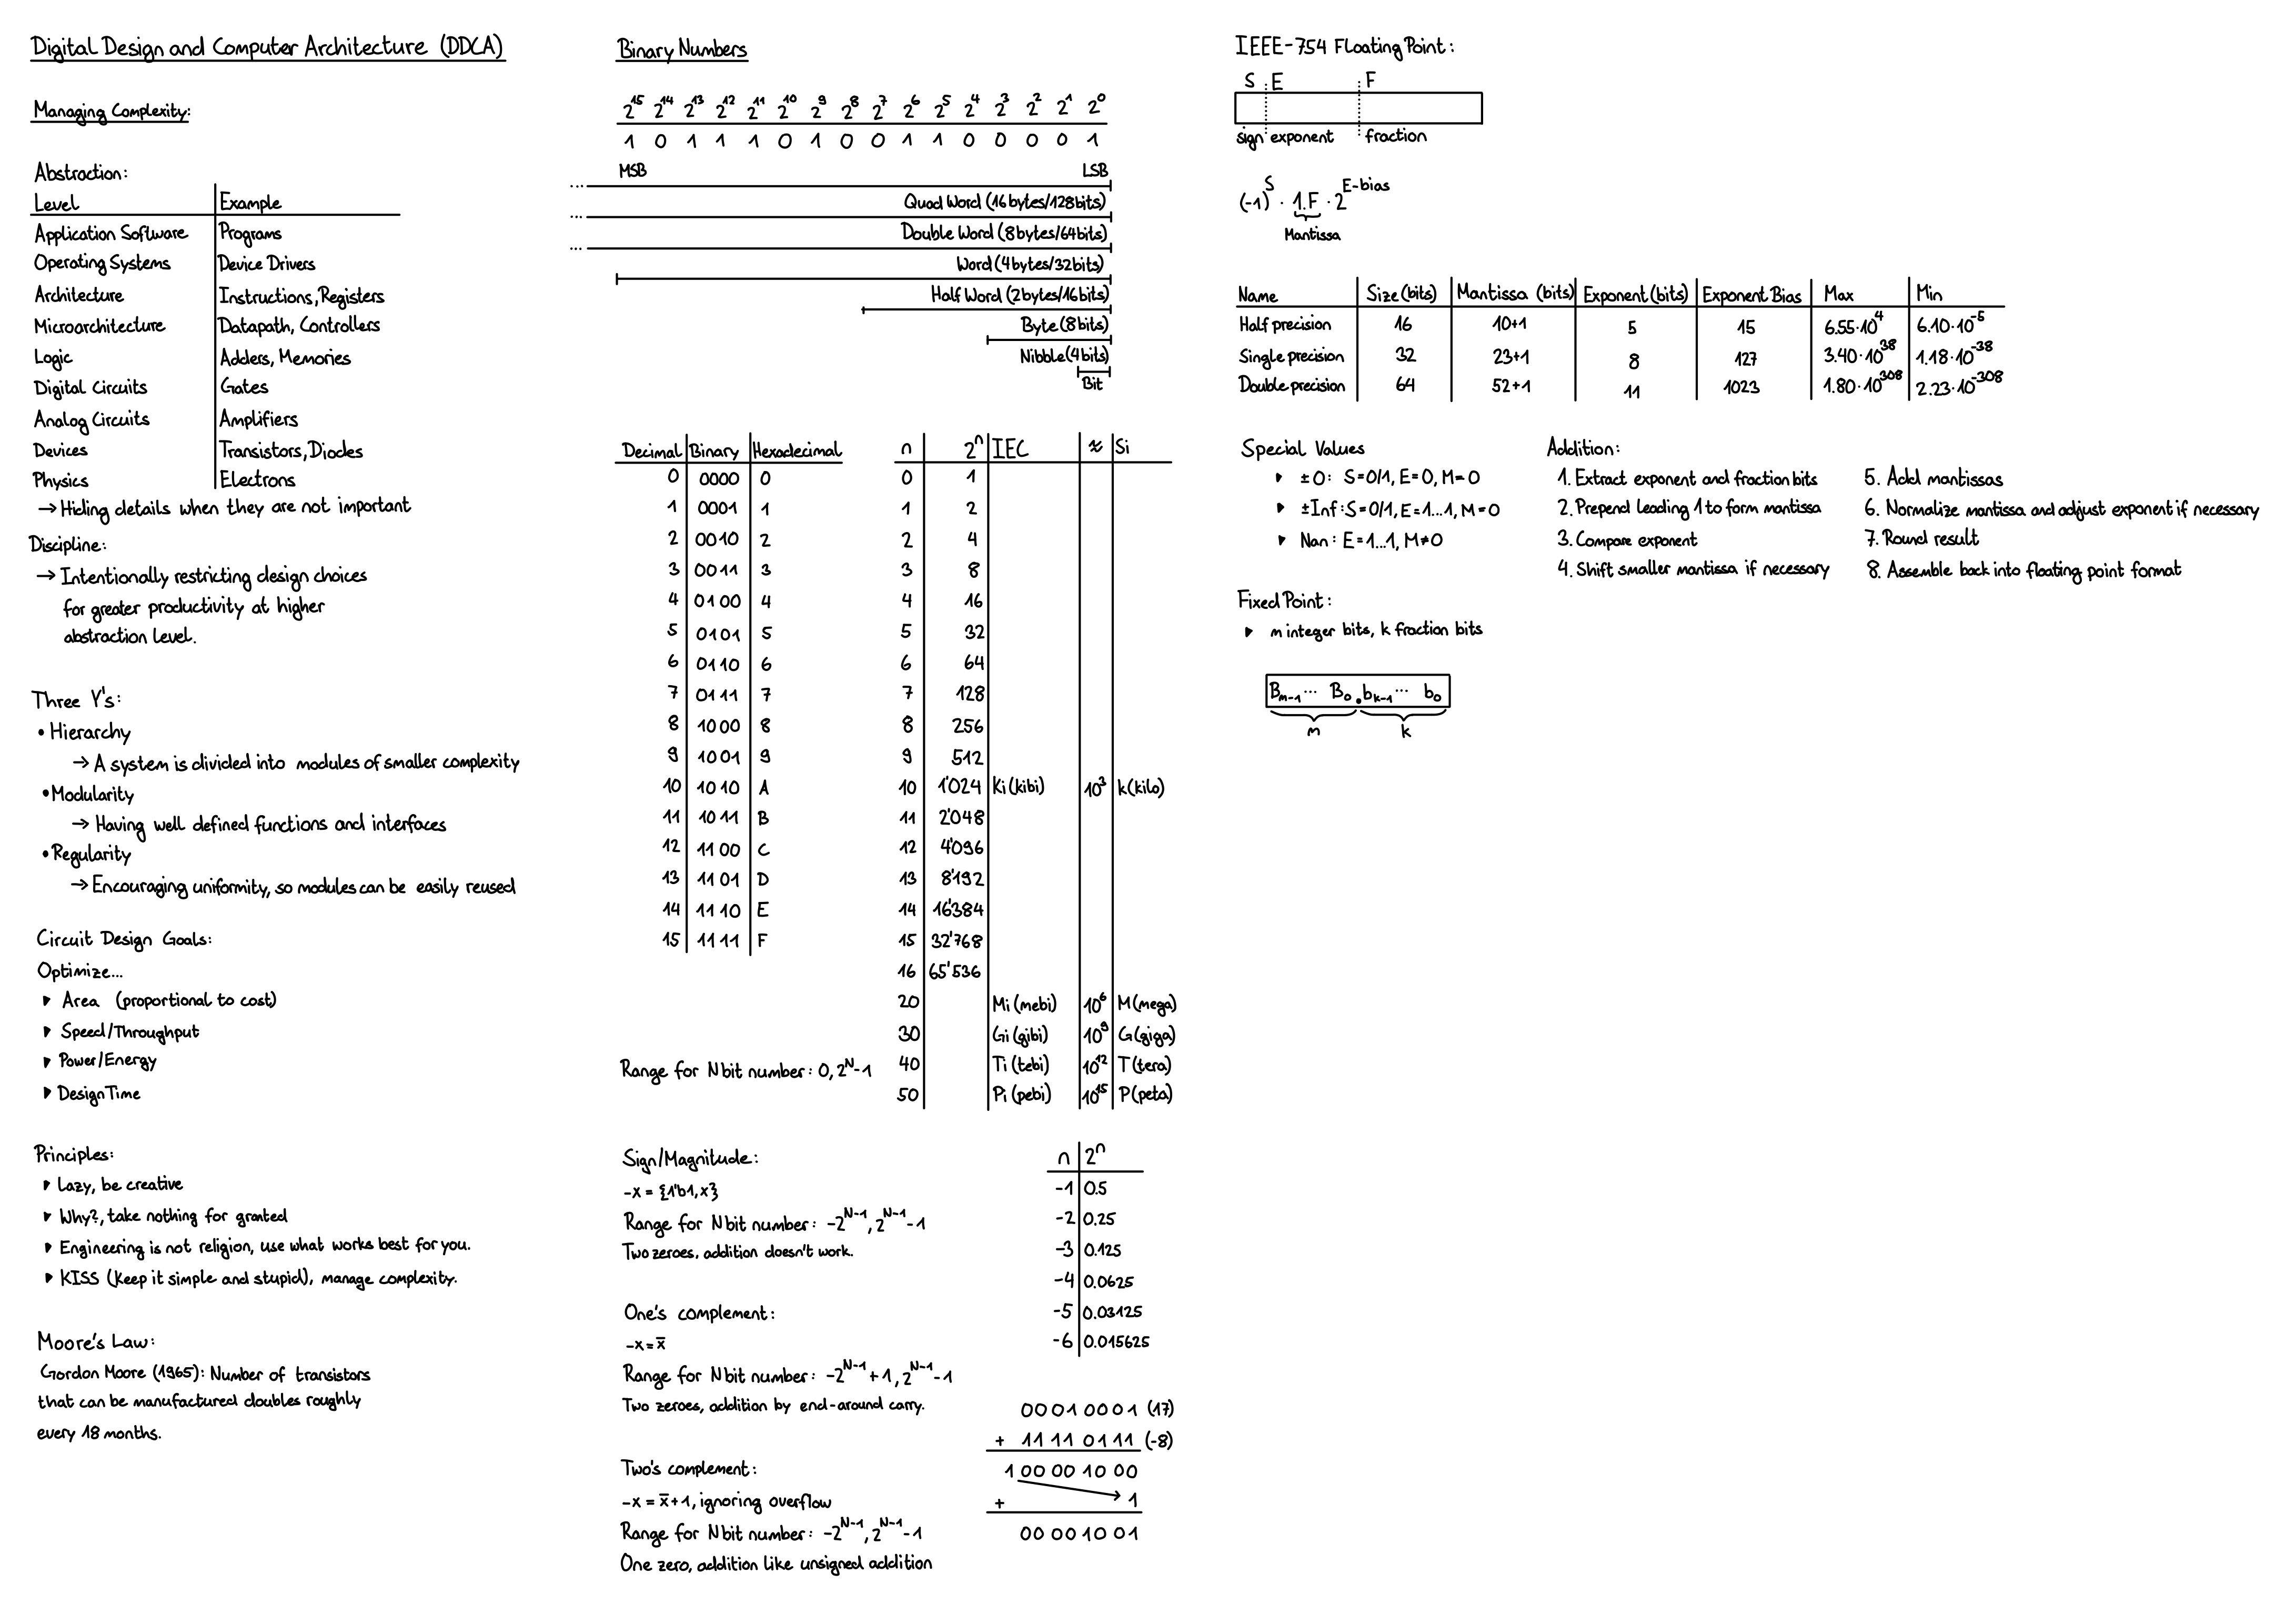 Digital Design and Computer Architecture (DDCA)
Managing Complexity:
Abstraction:
Level Example
Application Software Programs
Operating Systems Device Drivers
Architecture Instructions, Registers
Microarchitecture Datapath, Controllers
Logic Adders, Memories
Digital Circuits Gates
Analog Circuits Amplifiers
Devices Transistors, Diodes
Physics Electrons
→ Hiding details when they are not important
Discipline:
→ Intentionally restricting design choices
for greater productivity at higher
abstraction level.
Three Y's:
• Hierarchy
→ A system is divided into modules of smaller complexity
• Modularity
→ Having well defined functions and interfaces
• Regularity
→ Encouraging uniformity, so modules can be easily reused
Circuit Design Goals:
Optimize...
▸ Area (proportional to cost)
▸ Speed/Throughput
▸ Power/Energy
▸ Design Time
Principles:
▸ Lazy, be creative
▸ Why?, take nothing for granted
▸ Engineering is not religion, use what works best for you.
▸ KISS (Keep it simple and stupid), manage complexity.
Moore's Law:
Gordon Moore (1965): Number of transistors
that can be manufactured doubles roughly
every 18 months.
Binary Numbers
2^15 2^14 2^13 2^12 2^11 2^10 2^9 2^8 2^7 2^6 2^5 2^4 2^3 2^2 2^1 2^0
1 0 1 1 1 0 1 0 0 1 1 0 0 0 0 1
MSB LSB
... Quad Word (16 bytes/128 bits)
... Double Word (8 bytes/64 bits)
... Word (4 bytes/32 bits)
Half Word (2 bytes/16 bits)
Byte (8 bits)
Nibble (4 bits)
Bit
Decimal Binary Hexadecimal
0 0000 0
1 0001 1
2 0010 2
3 0011 3
4 0100 4
5 0101 5
6 0110 6
7 0111 7
8 1000 8
9 1001 9
10 1010 A
11 1011 B
12 1100 C
13 1101 D
14 1110 E
15 1111 F
n 2^n IEC ≈ Si
0 1
1 2
2 4
3 8
4 16
5 32
6 64
7 128
8 256
9 512
10 1'024 Ki (kibi) 10^3 k (kilo)
11 2'048
12 4'096
13 8'192
14 16'384
15 32'768
16 65'536
20 Mi (mebi) 10^6 M (mega)
30 Gi (gibi) 10^9 G (giga)
40 Ti (tebi) 10^12 T (tera)
50 Pi (pebi) 10^15 P (peta)
Range for N bit number: 0, 2^N-1
Sign/Magnitude:
-x = {1'b1, x}
Range for N bit number: -2^N-1, 2^N-1 -1
Two zeroes, addition doesn't work.
One's complement:
-x = x̅
Range for N bit number: -2^N-1 +1, 2^N-1 -1
Two zeroes, addition by end-around carry.
Two's complement:
-x = x̅+1, ignoring overflow
Range for N bit number: -2^N-1, 2^N-1 -1
One zero, addition like unsigned addition
n 2^n
-1 0.5
-2 0.25
-3 0.125
-4 0.0625
-5 0.03125
-6 0.015625
0001 0001 (17)
+ 1111 0111 (-8)
1 0000 1000
+ 1
0000 1001
IEEE-754 Floating Point:
S E F
sign exponent fraction
(-1)^S · 1.F · 2^E-bias
Mantissa
Name Size (bits) Mantissa (bits) Exponent (bits) Exponent Bias Max Min
Half precision 16 10+1 5 15 6.55·10^4 6.10·10^-5
Single precision 32 23+1 8 127 3.40·10^38 1.18·10^-38
Double precision 64 52+1 11 1023 1.80·10^308 2.23·10^-308
Special Values
▸ ±0: S=0/1, E=0, M=0
▸ ±Inf: S=0/1, E=1...1, M=0
▸ Nan: E=1...1, M≠0
Addition:
1. Extract exponent and fraction bits
2. Prepend leading 1 to form mantissa
3. Compare exponent
4. Shift smaller mantissa if necessary
5. Add mantissas
6. Normalize mantissa and adjust exponent if necessary
7. Round result
8. Assemble back into floating point format
Fixed Point:
▸ m integer bits, k fraction bits
B_m-1 ... B_0 . b_k-1 ... b_0
m k